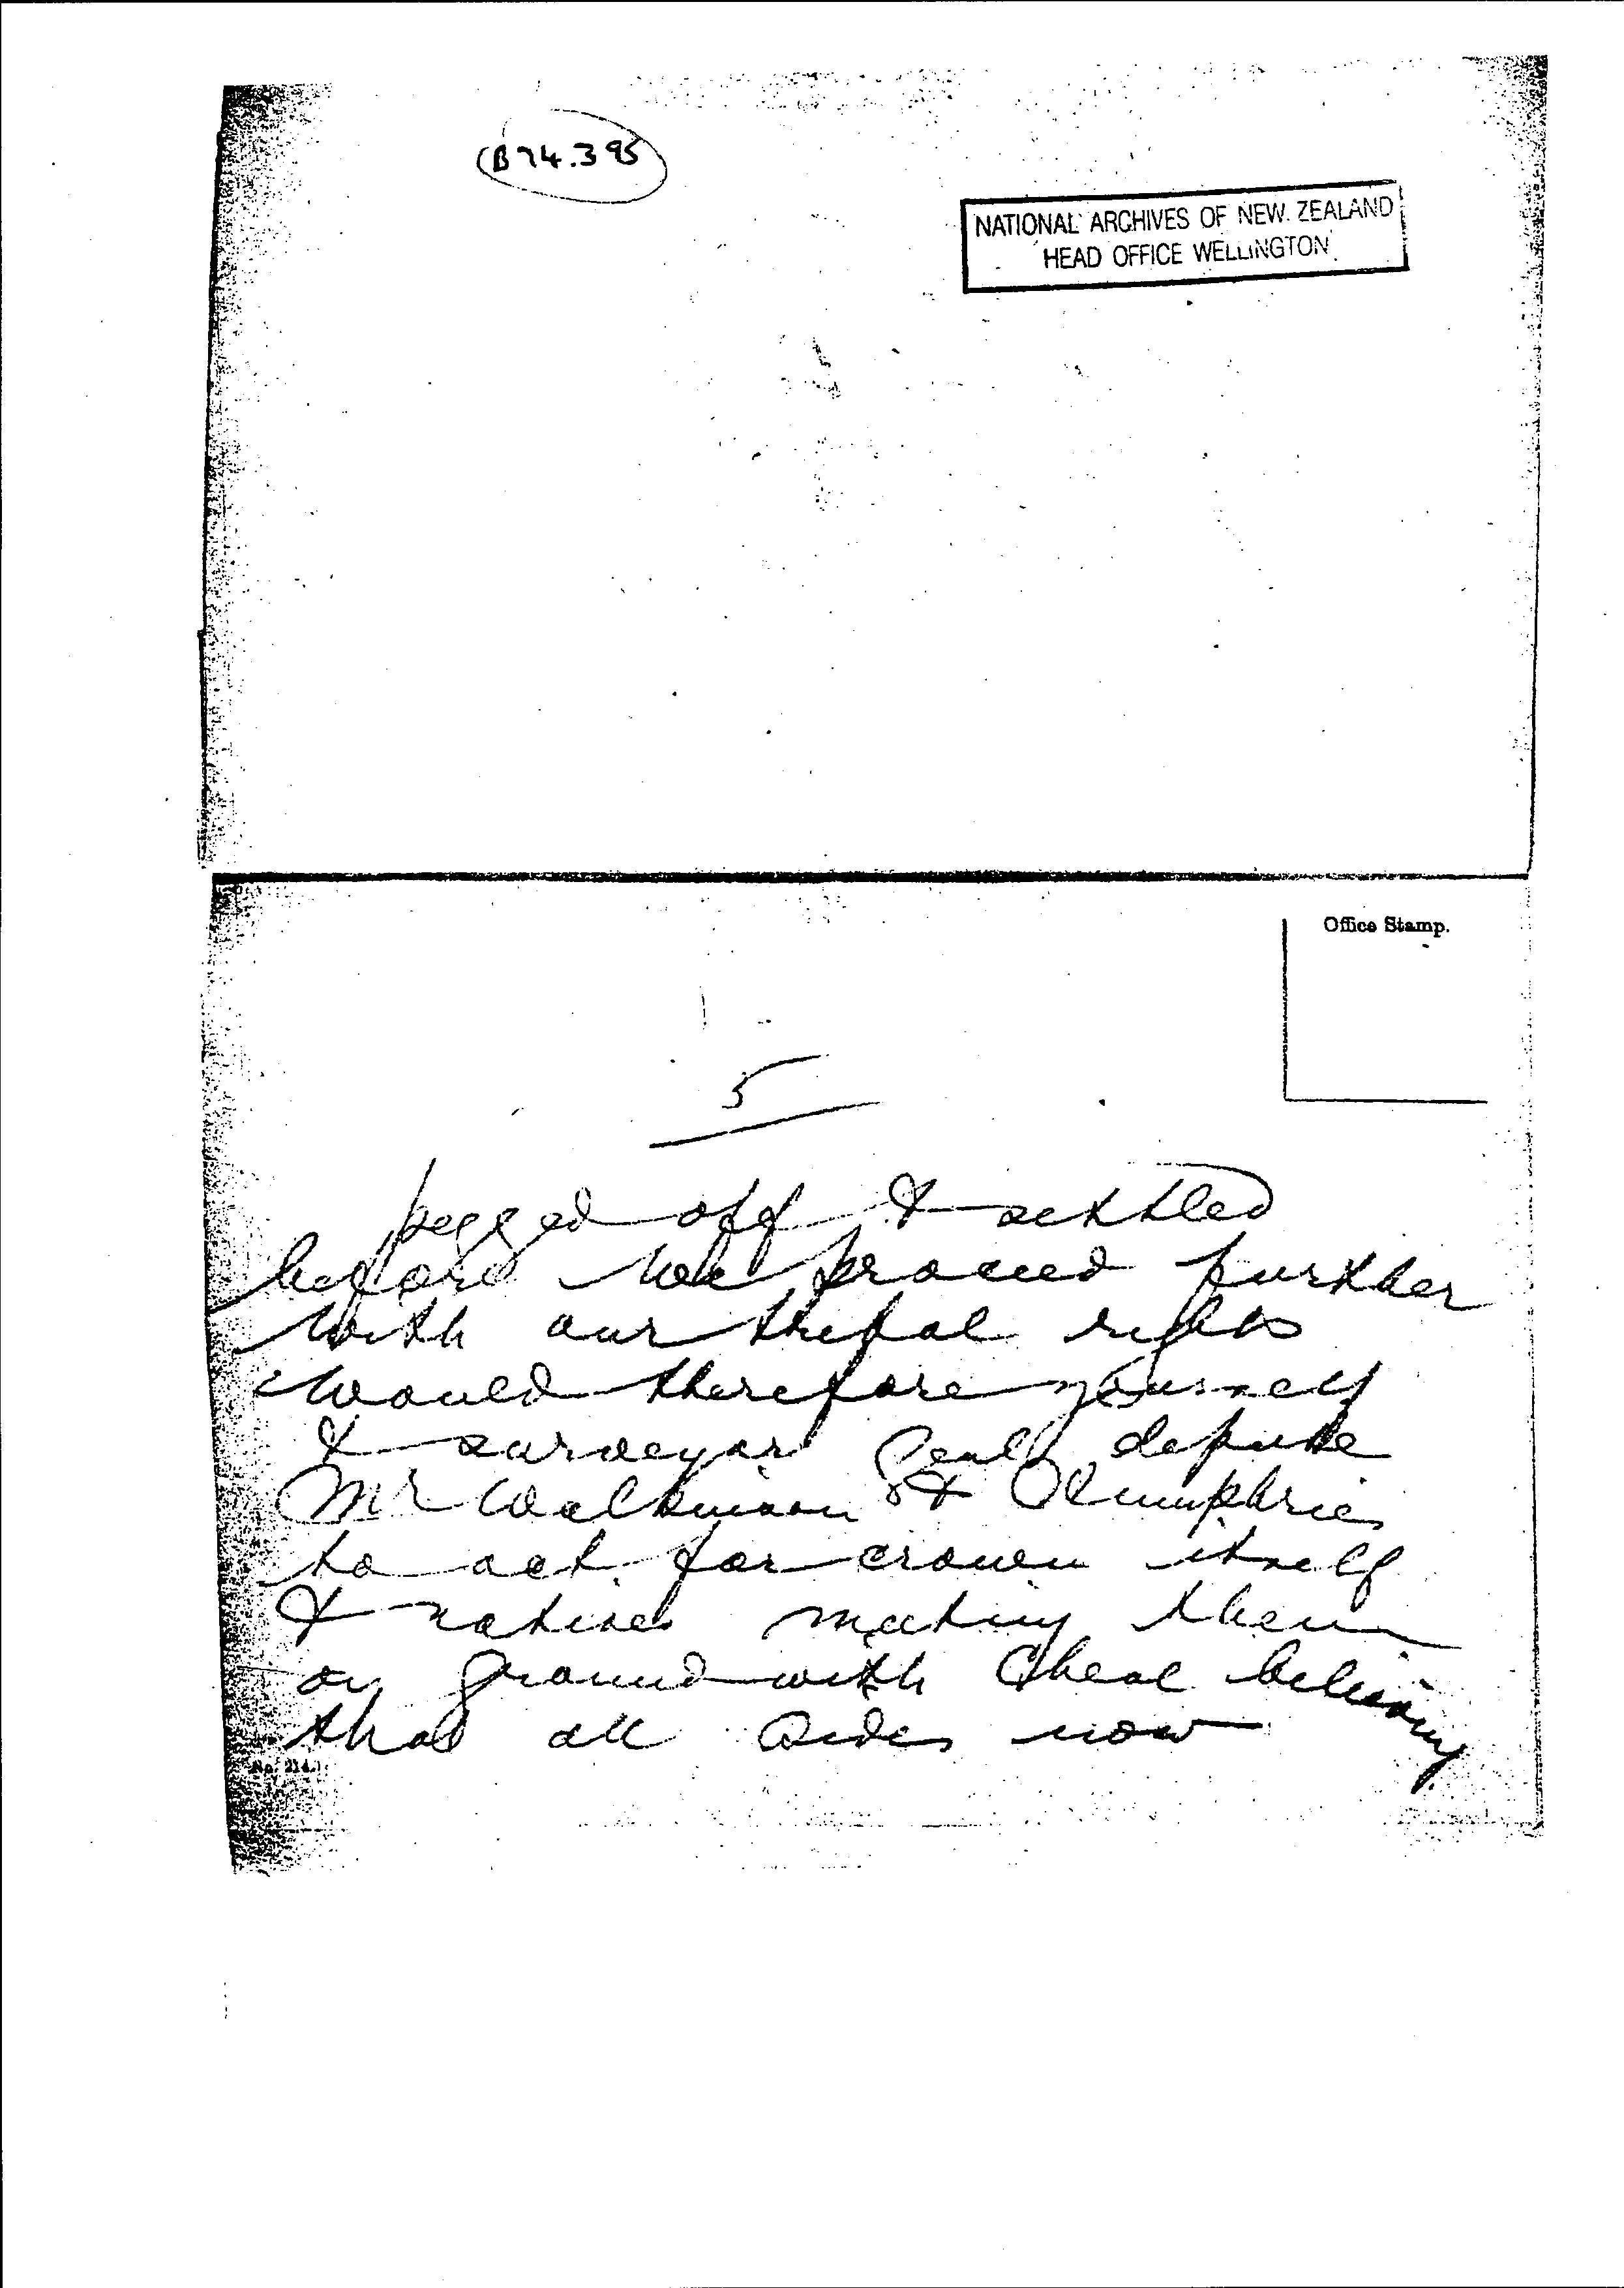 (B74.395)
NATIONAL ARCHIVES OF NEW ZEALAND
HEAD OFFICE WELLINGTON
Office Stamp.
5
pegged off & settled
before we proceed further
with our tribal rights
would therefore yourself
& surveyor Genl depute
Mr Wilkinson & Humphries
to act for crown itself
& natives meeting them
on ground with Cheal believing
that all sides now
No. 214.